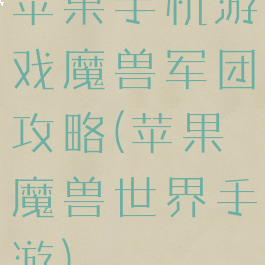 苹果手机游
戏魔兽军团
攻略(苹果
魔兽世界手
游)